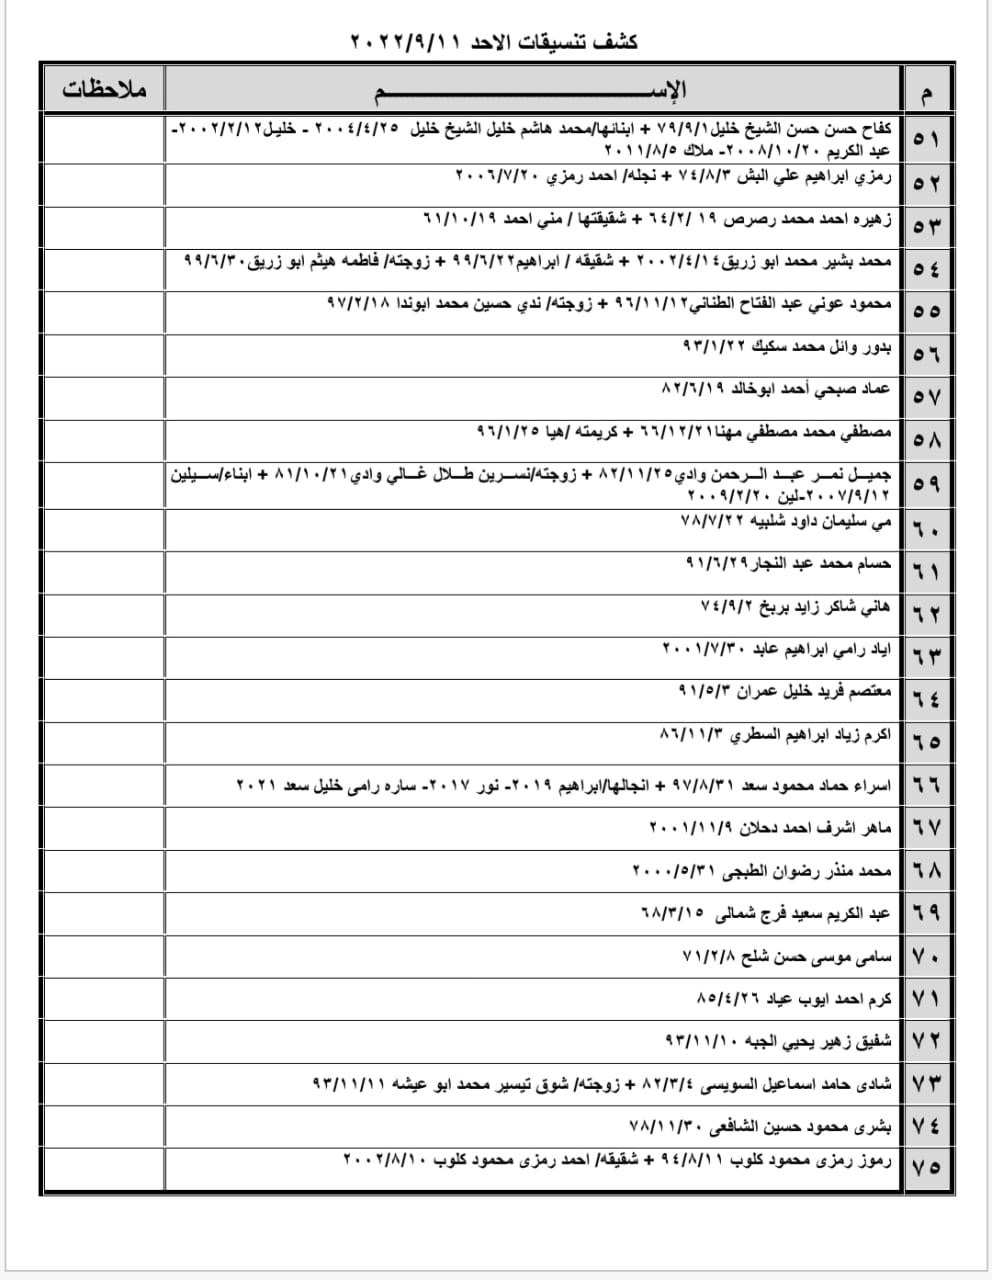 كشف تنسيقات الاحد ٢٠٢٢/٩/١١
م الإســــــــم ملاحظات
٥١ كفاح حسن حسن الشيخ خليل٧٩/٩/١ + ابنائها/محمد هاشم خليل الشيخ خليل ٢٠٠٤/٤/٢٥ - خليل٢٠٠٢/٢/١٢-
عبد الكريم ٢٠٠٨/١٠/٢٠- ملاك ٢٠١١/٨/٥
٥٢ رمزي ابراهيم علي البش ٧٤/٨/٣ + نجله/ احمد رمزي ٢٠٠٦/٧/٢٠
٥٣ زهيره احمد محمد رصرص ١٩ /٦٤/٢ + شقيقتها / مني احمد ٦١/١٠/١٩
٥٤ محمد بشير محمد ابو زريق٢٠٠٢/٤/١٤ + شقيقه / ابراهيم٩٩/٦/٢٢ + زوجته/ فاطمه هيثم ابو زريق٩٩/٦/٣٠
٥٥ محمود عوني عبد الفتاح الطناني٩٦/١١/١٢ + زوجته/ ندي حسين محمد ابوندا ٩٧/٢/١٨
٥٦ بدور وائل محمد سكيك ٩٣/١/٢٢
٥٧ عماد صبحي أحمد ابوخالد ٨٢/٦/١٩
٥٨ مصطفي محمد مصطفي مهنا٦٦/١٢/٢١ + كريمته /هيا ٩٦/١/٢٥
٥٩ جميـل نمـر عبـد الـرحمن وادي٨٢/١١/٢٥ + زوجته/نسـرين طـلال غـالي وادي٨١/١٠/٢١ + ابناء/سـيلين
٢٠٠٧/٩/١٢-لين ٢٠٠٩/٢/٢٠
٦٠ مي سليمان داود شلبيه ٧٨/٧/٢٢
٦١ حسام محمد عبد النجار٩١/٦/٢٩
٦٢ هاني شاكر زايد بربخ ٧٤/٩/٢
٦٣ اياد رامي ابراهيم عابد ٢٠٠١/٧/٣٠
٦٤ معتصم فريد خليل عمران ٩١/٥/٣
٦٥ اكرم زياد ابراهيم السطري ٨٦/١١/٣
٦٦ اسراء حماد محمود سعد ٩٧/٨/٣١ + انجالها/ابراهيم ٢٠١٩- نور ٢٠١٧- ساره رامى خليل سعد ٢٠٢١
٦٧ ماهر اشرف احمد دحلان ٢٠٠١/١١/٩
٦٨ محمد منذر رضوان الطبجى ٢٠٠٠/٥/٣١
٦٩ عبد الكريم سعيد فرج شمالى ٦٨/٣/١٥
٧٠ سامى موسى حسن شلح ٧١/٢/٨
٧١ كرم احمد ايوب عياد ٨٥/٤/٢٦
٧٢ شفيق زهير يحيي الجبه ٩٣/١١/١٠
٧٣ شادى حامد اسماعيل السويسى ٨٢/٣/٤ + زوجته/ شوق تيسير محمد ابو عيشه ٩٣/١١/١١
٧٤ بشرى محمود حسين الشافعى ٧٨/١١/٣٠
٧٥ رموز رمزى محمود كلوب ٩٤/٨/١١ + شقيقه/ احمد رمزى محمود كلوب ٢٠٠٢/٨/١٠